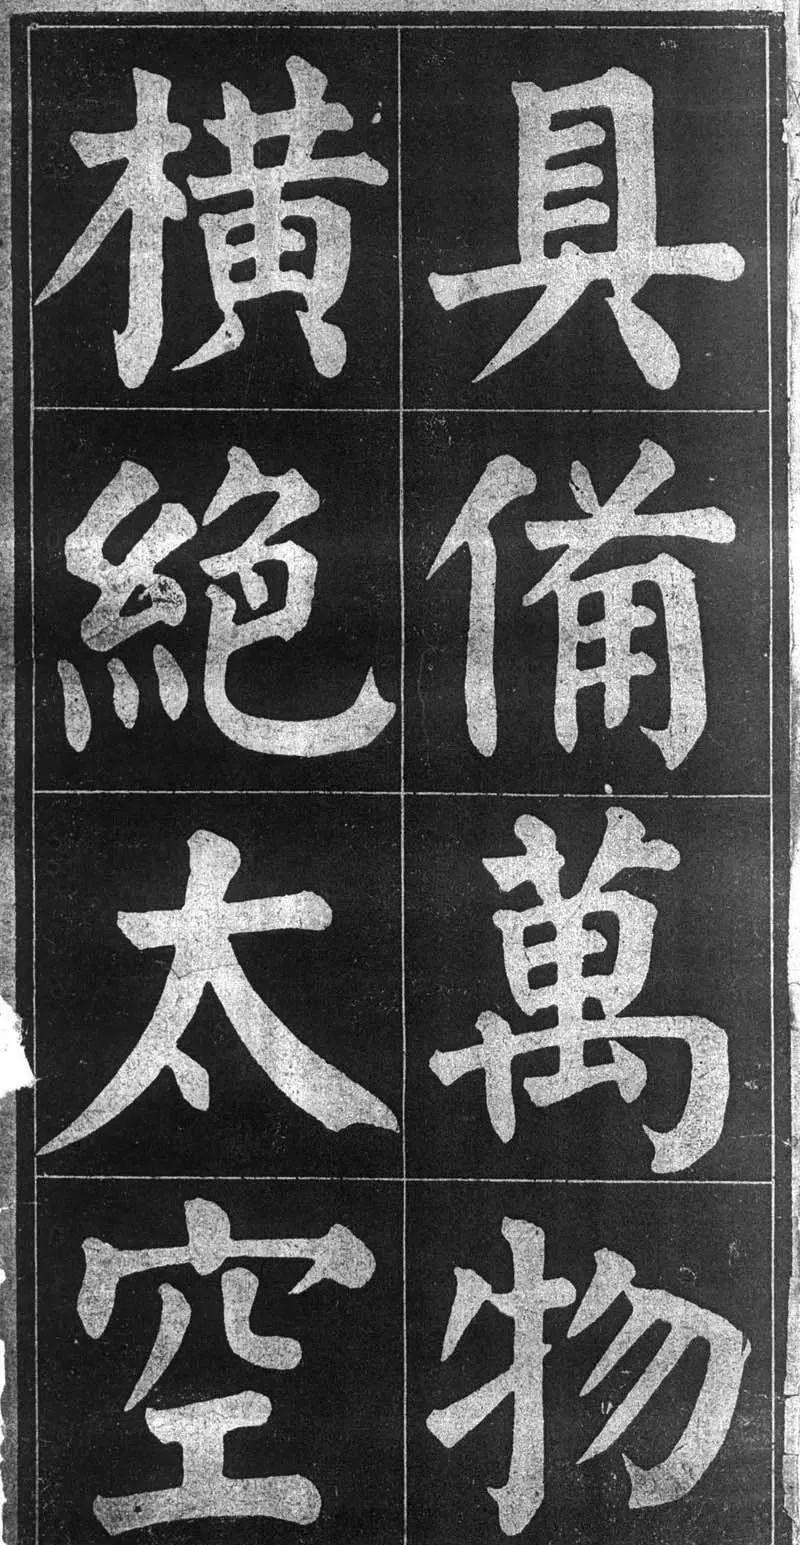 具備萬物
橫絕太空